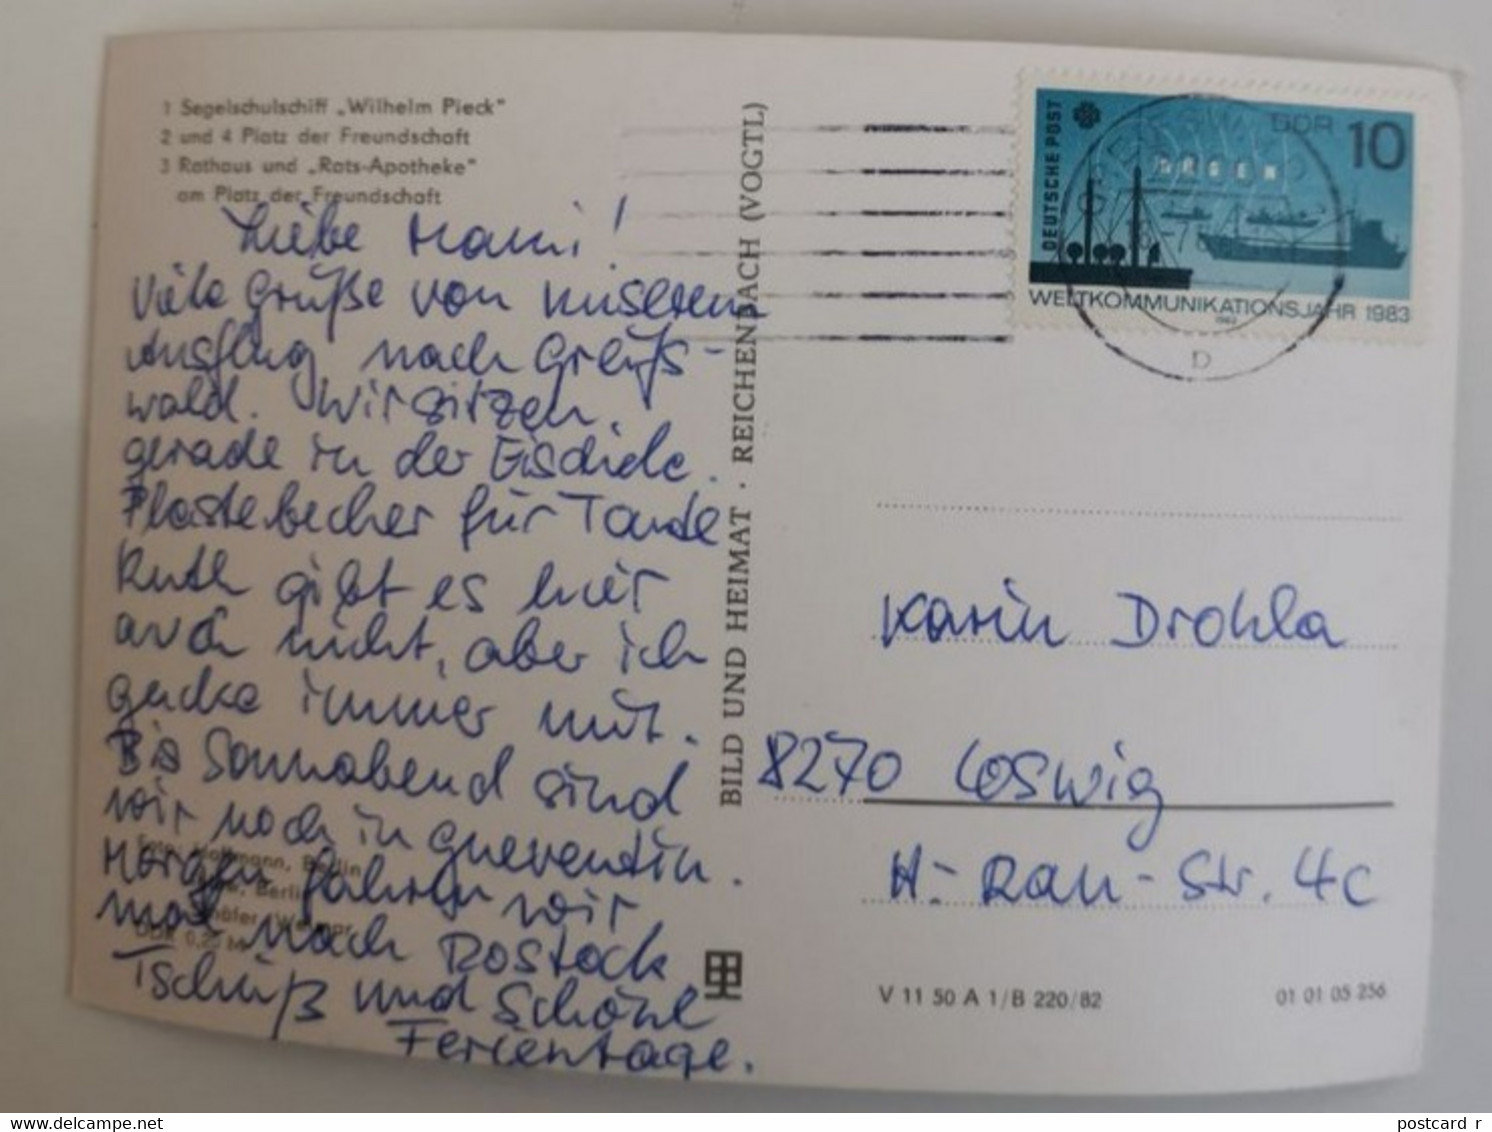 1 Segelschulschiff „Wilhelm Pieck"
2 und 4 Platz der Freundschaft
3 Rathaus und „Rats-Apotheke"
am Platz der Freundschaft
Liebe Mami!
Viele Grüße von unserem
Ausflug nach Greifs-
wald. Wir sitzen
gerade in der Eisdiele.
Plastebecher für Tante
Ruth gibt es hier
auch nicht, aber ich
gucke immer mit.
Bis Sonnabend sind
wir noch in Greventin.
Morgen fahren wir
mal nach Rostock
Tschüß und schöne
Ferientage.
Berlin
Berlin
DDR 0,20 M
BILD UND HEIMAT · REICHENBACH (VOGTL)
DEUTSCHE POST
DDR 10
WELTKOMMUNIKATIONSJAHR 1983
Karin Drohla
8270 Coswig
H.-Rau-Str. 4c
V 11 50 A 1/B 220/82
01 01 05 256
delcampe.net
postcard r